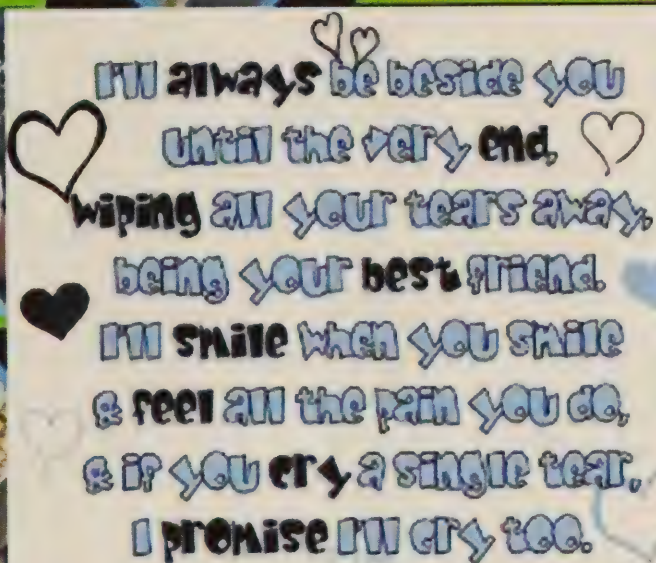 I'll always be beside you
until the very end,
wiping all your tears away,
being your best friend.
I'll smile when you smile
& feel all the pain you do,
& if you cry a single tear,
I promise I'll cry too.